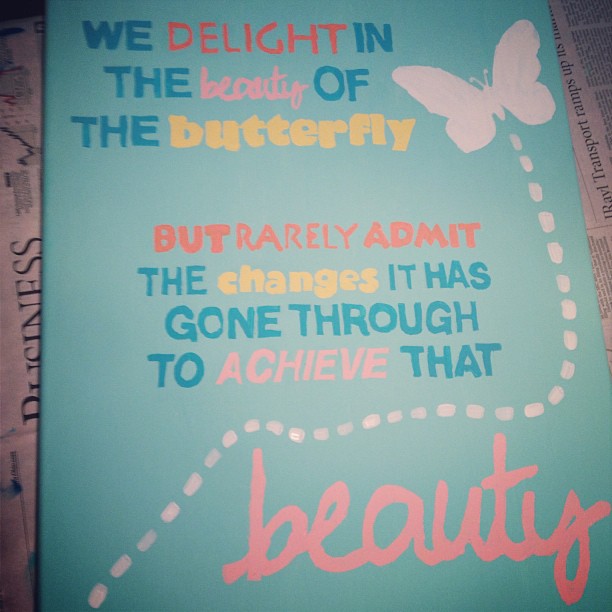 WE DELIGHT IN
THE beauty OF
THE butterfly
BUT RARELY ADMIT
THE changes IT HAS
GONE THROUGH
TO ACHIEVE THAT
beauty
BUSINESS
Transport ramps up its